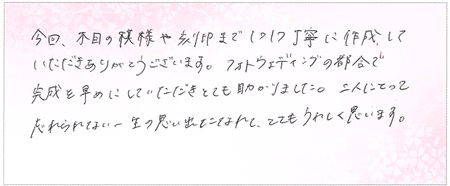 今回、木目の模様や刻印まで1つ1つ丁寧に作成して
いただきありがとうございます。フォトウェディングの都合で
完成を早めにしていただきとても助かりました。二人にとって
忘れられない一生の思い出となれし、とてもうれしく思います。